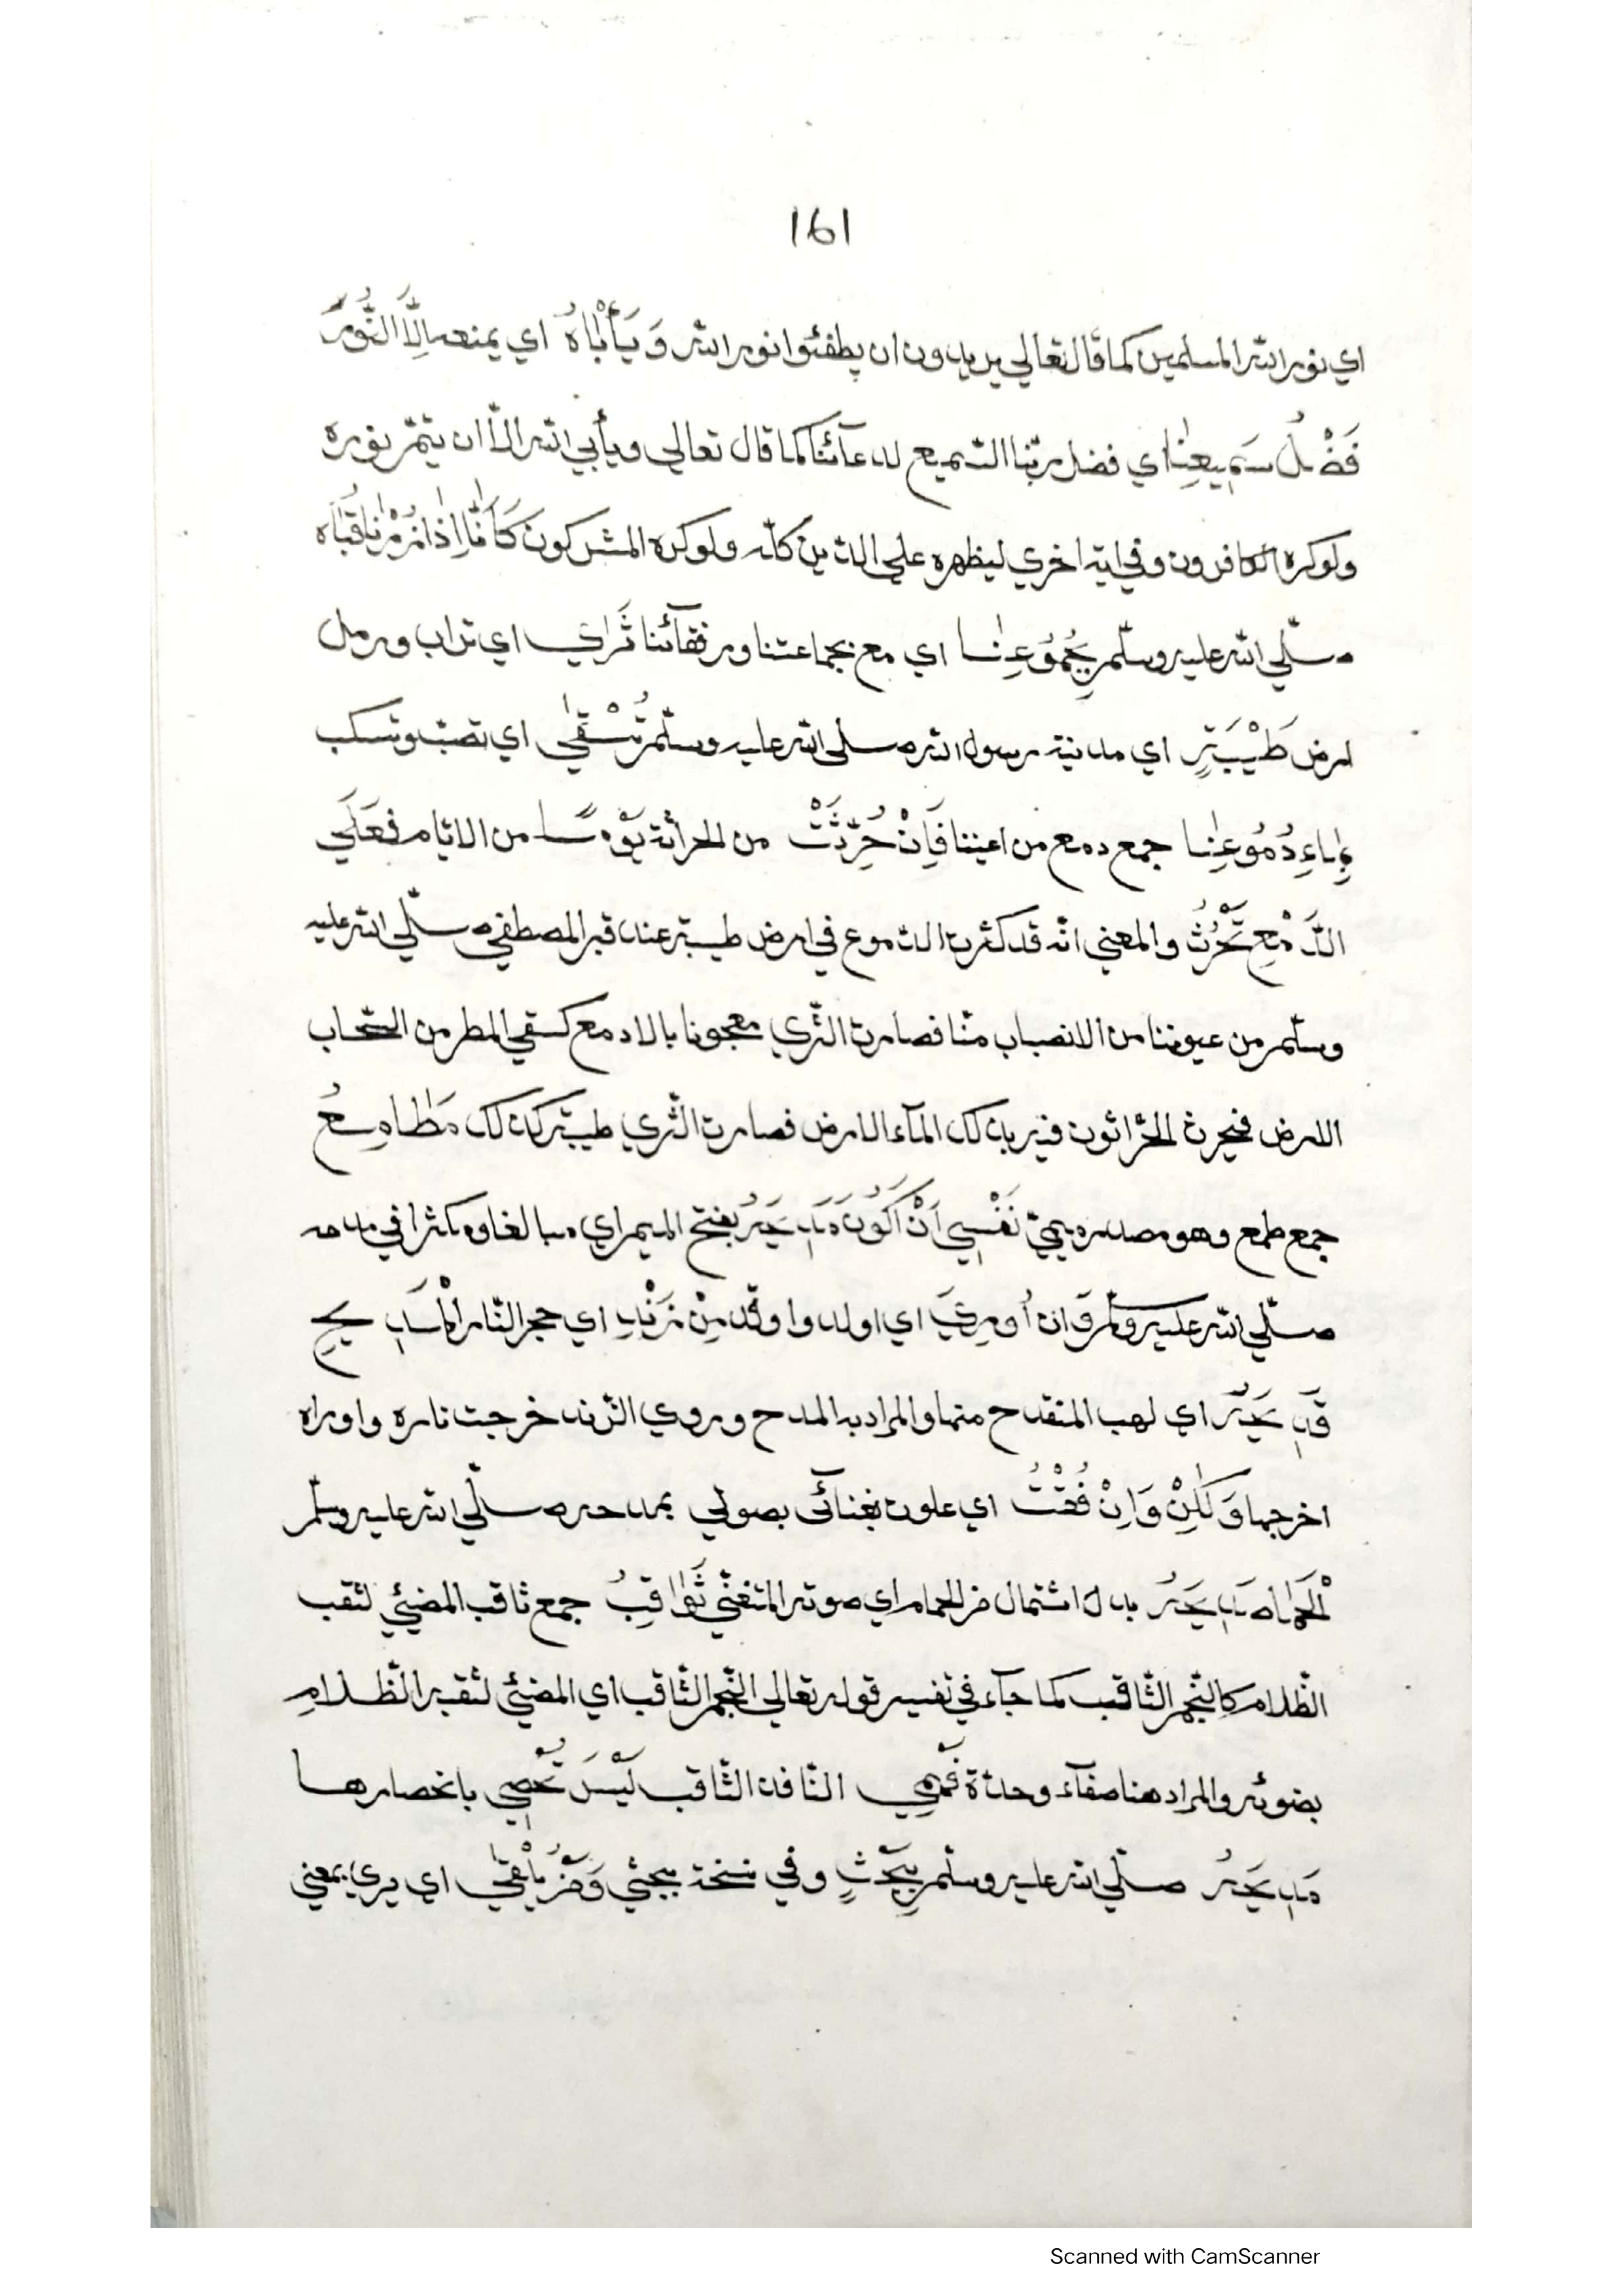 161
اي نور الله المسلمين كما قال تعالي يريدون ان يطفئوا نور الله وَيَأْبَاهُ اي يمنعه اِلَّا النُّورَ
فَضْلُ سَمِيعِنَا اي فضل ربّنا السّميع لدعآئنا كما قال تعالي ويأبي الله الّا ان يتمّ نوره
ولوكره الكافرون وفي اية اخري ليظهره علي الدّين كلّه ولوكره المشركون كَأَنَّا اِذَا نَزُرْنَا قُبَاه
صلّي الله عليه وسلّم بِجُمُوعِنَا اي مع بجماعتنا ورفقآئنا ثَرَايَ اي تراب ورمل
ارض طَيْبَةٍ اي مدينة رسول الله صلي الله عليه وسلّم تُسْقَى اي تصبّ وتسكب
بِمَاءِ دُمُوعِنَا جمع دمع من اعيننا فَاِنْ حُرِّثَتْ من الحراثة يَوْمًا من الايّام فَعَلَي
الدَّمْعِ تَحْرُثُ والمعني انّه قد كثرت الدّموع في ارض طيبة عند قبر المصطفي صلّي الله عليه
وسلّم من عيوننا من الانصباب منّا فصارت الثّري معجونا بالادمع كسقي المطر من السّحاب
الارض فيحرث الحرّاثون فيزيد بذلك المآء الارض فصارت الثّري طيبة كذلك مَطَامِعُ
جمع طمع وهو مصدر ميميّ نَفْسِي اَنْ اَكُونَ مَدِيحَهُ بفتح الميم اي مبالغا ومكثرا في مدحه
صلّي الله عليه وسلّم وَان اُورِيَ اي اولد واوقد مِنْ زَنْدِ اي حجر النّار الْمَدِيحِ
قَدِيحَهُ اي لهب المنقدح منها والمراد به المدح وروي الزّند خرجت ناره واوراه
اخرجها وَلٰكِنْ وَاِنْ فُقْتُ اي علوت بغنآئى بصوتي بمدحه صلّي الله عليه وسلّم
الْحَمَامَ صَدِيحَهُ بدل اشتمال من الحمام اي صوته المتغنّي ثَوَاقِبُ جمع ثاقب المضيئي لثقب
الظّلام كالنّجم الثّاقب كما جآء في تفسير قوله تعالي النّجم الثّاقب اي المضيئي لثقبه الظّلام
بضوئه والمراد هنا صفآء وحدّة فَهْمِي النّافذ الثّاقب لَيْسَ تُحْصِي بانحصارها
مَدِيحَهُ صلّي الله عليه وسلّم بِبَحْثٍ وفي نسخة ببحثي وَمَنْ يَلْقَي اي يري بمعني
Scanned with CamScanner